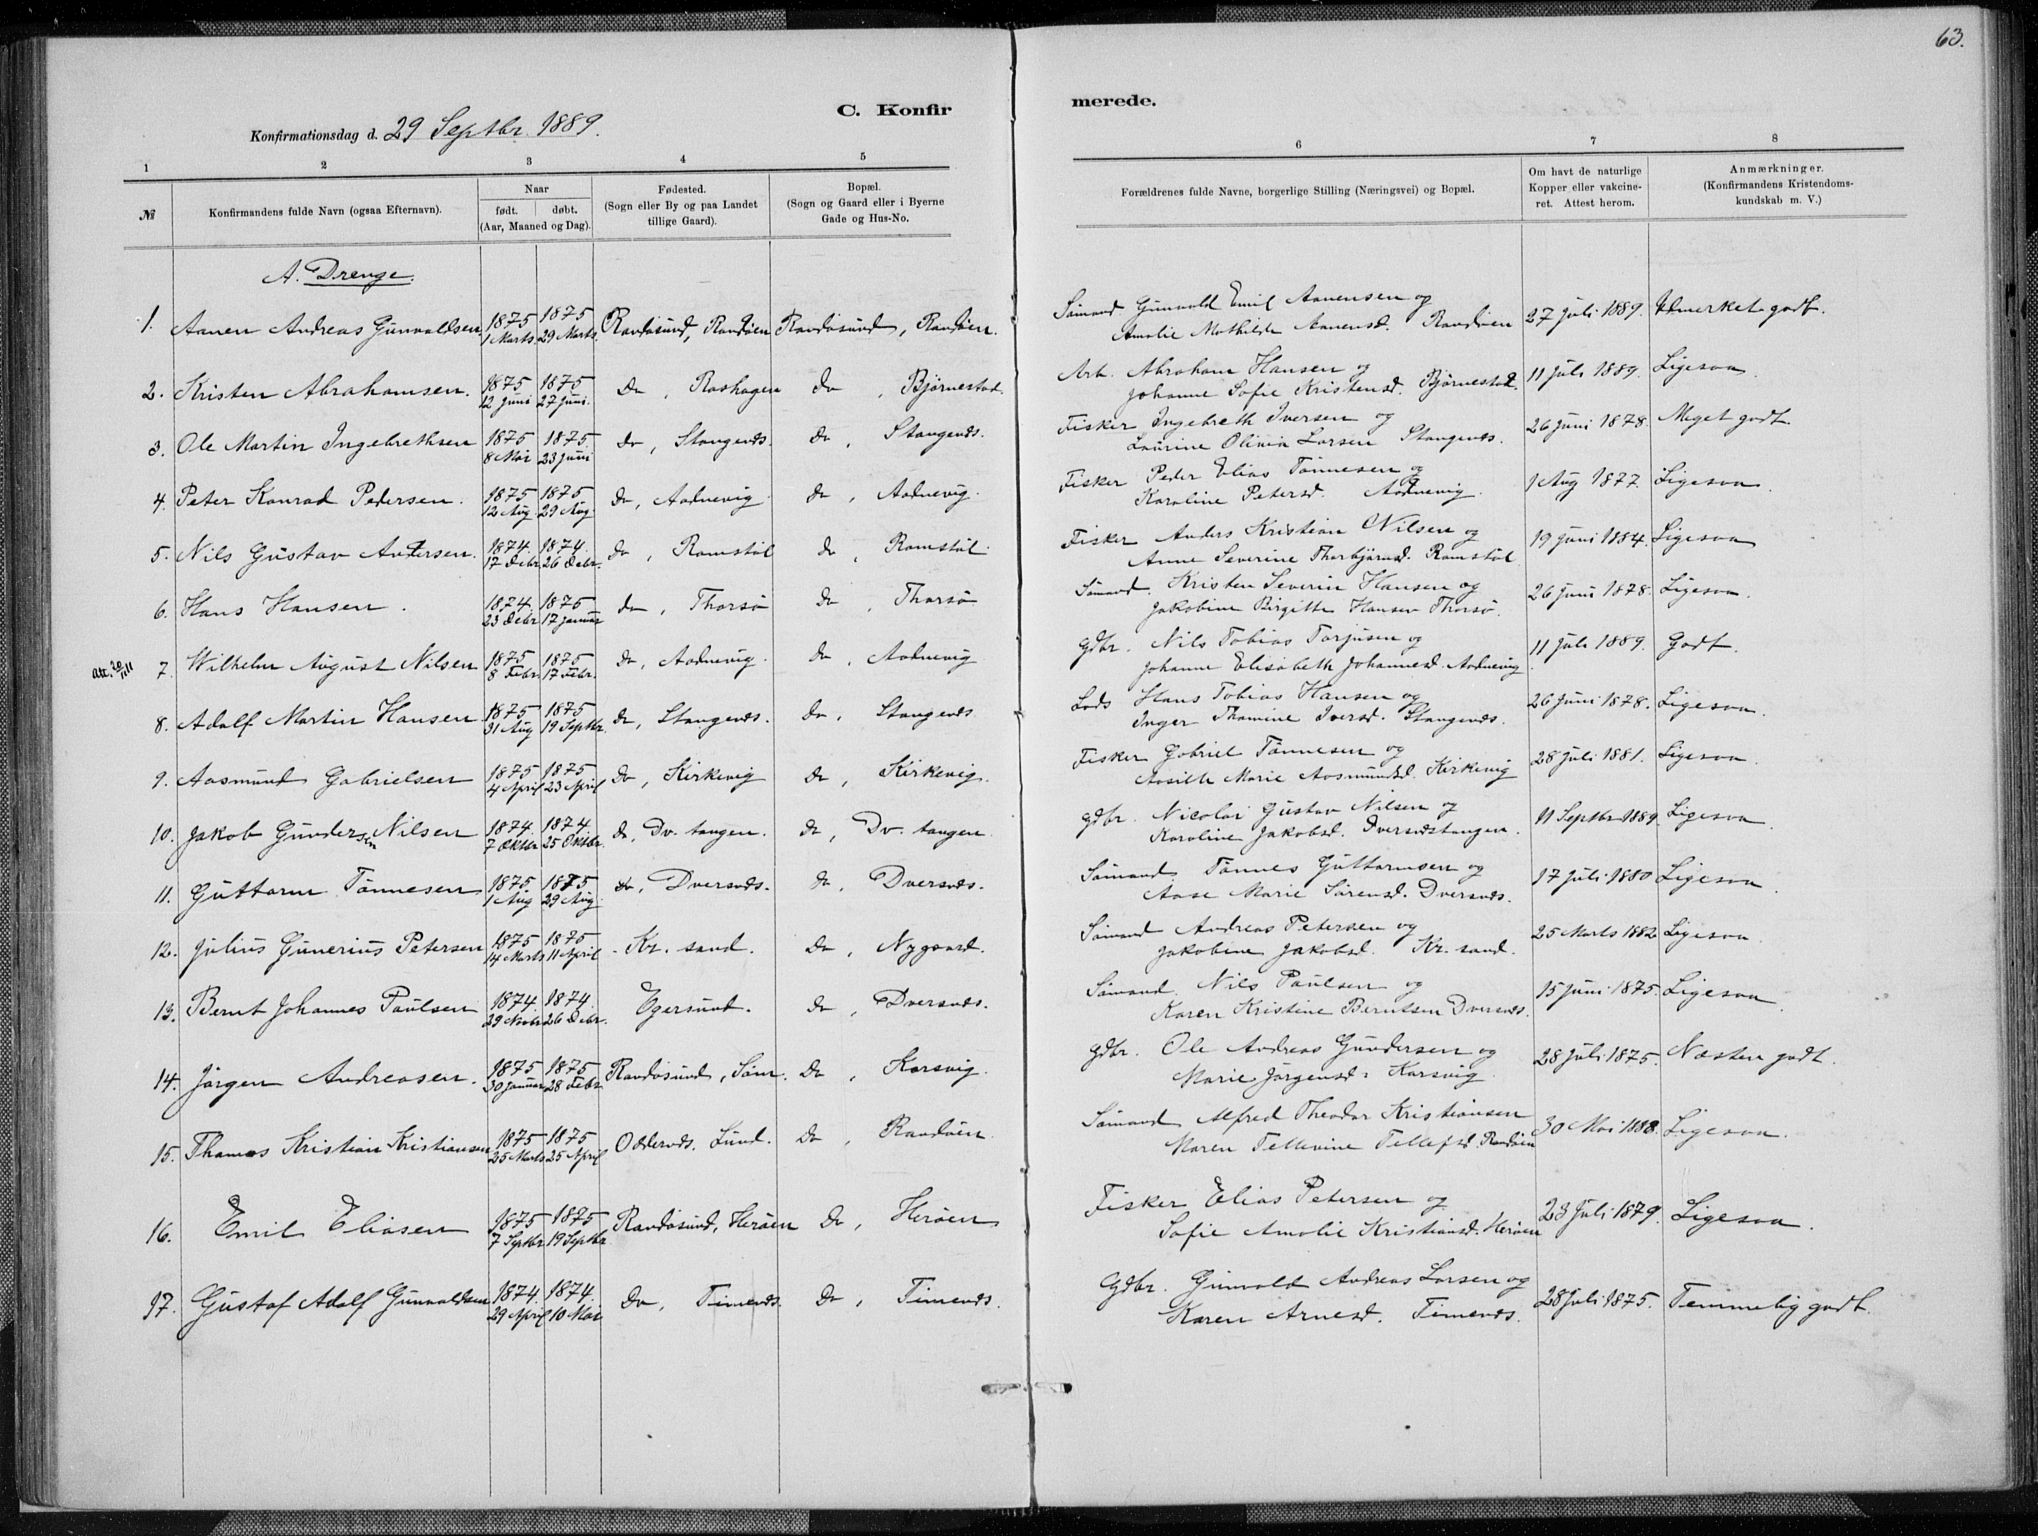 63.
C. Konfir
merede.
Konfirmationsdag d. 29 Septbr. 1889.
1 2 3 4 5
6 7 8
№
Konfirmandens fulde Navn (ogsaa Efternavn).
Naar
født. døbt.
(Aar, Maaned og Dag).
Fødested.
(Sogn eller By og paa Landet
tillige Gaard).
Bopæl.
(Sogn og Gaard eller i Byerne
Gade og Hus-No.
Forældrenes fulde Navne, borgerlige Stilling (Næringsvei) og Bopæl.
Om havt de naturlige
Kopper eller vakcine-
ret. Attest herom.
Anmærkninger.
(Konfirmandens Kristendoms-
kundskab m. V.)
A. Drenge.
1. Aanen Andreas Gunvaldsen 1875 1 Marts. 1875 29 Marts. Randøsund, Randøen Randøsund, Randøen.
Sømand Gunvald Emil Aanensen og
Amalie Mathilde Aanensd. Randøen 27 juli 1889. Udmerket godt.
2. Kristen Abrahamsen. 1875 12 Juni 1875 27 Juni. do , Roshagen do , Bjørnestad.
Arb. Abraham Hansen og
Johanne Sofie Kristensd. Bjørnestad. 11 juli 1889. Ligesaa.
3. Ole Martin Ingebrethsen 1875 8 Mai 1875 23 Juni do , Stangenæs. do , Stangenæs.
Fisker Ingebreth Iversen og
Laurine Olivia Larsen Stangenæs. 26 juni 1878. Meget godt.
4. Peter Konrad Pedersen. 1875 12 Aug. 1875 29 Aug. do , Aadnevig. do , Aadnevig.
Fisker Peder Elias Tønnesen og
Karoline Petersd. Aadnevig. 1 Aug 1877. Ligesaa.
5. Nils Gustav Andersen. 1874. 17 Debr. 1874. 26 Debr. do , Ramstøl do , Ramstøl.
Fisker Anders Kristian Nilsen og
Anne Severine Thorbjørnsd. Ramstøl 19 juni 1884. Ligesaa
6. Hans Hansen. 1874. 23 Debr 1875 17 januar do , Thorsø do , Thorsø
Sømand. Kristen Severin Hansen og
Jakobine Birgitte Hansen Thorsø. 26 juni 1878. Ligesaa.
Att. 20/11 11
7. Wilhelm August Nilsen 1875 8 Febr. 1875 17 Febr. do , Aadnevig. do , Aadnevig
Gdbr. Nils Tobias Torjusen og
Johanne Elisabeth Johannesd. Aadnevig 11 juli 1889. Godt.
8. Adolf Martin Hansen 1875 31 Aug 1875 19 Septbr. do , Stangenæs. do , Stangenæs
Lods Hans Tobias Hansen og
Inger Thomine Iversd. Stangenæs. 26 juni 1878. Ligesaa.
9. Aasmund Gabrielsen 1875 4 April 1875 23 April do , Kirkevig do , Kirkevig.
Fisker Gabriel Tønnesen og
Aasille Marie Aasmundsd. Kirkevig 28 juli 1881. Ligesaa.
10. Jakob Gundersen Nilsen 1874. 7 Oktbr 1874. 25 Oktbr. do , Dv. tangen. do , Dv. tangen.
Gdbr. Nicolai Gustav Nilsen og
Karoline Jakobsd. Dversnæstangen. 11 Septbr 1889. Ligesaa.
11. Guttorm Tønnesen 1875. 1 Aug 1875 29 Aug. do , Dversnæs. do , Dversnæs.
Sømand. Tønnes Guttormsen og
Aase Marie Sørensd. Dversnæs. 17 juli 1880 Ligesaa.
12. Julius Gunerius Petersen 1875 14 Marts 1875 11 April - Kr. sand. do , Nygaard.
Sømand Andreas Petersen og
Jakobine Jakobsd. Kr. sand. 25 Marts 1882 Ligesaa.
13. Bernt Johannes Paulsen 1874. 29 Novbr 1874. 26 Debr. Egersund. do , Dversnæs.
Sømand. Nils Paulsen og
Karen Kristine Berntsen Dversnæs. 15 juni 1875. Ligesaa.
14. Jørgen Andreasen. 1875 30 Januar 1875 28 Febr. Randøsund, Søm. do , Korsvig.
Gdbr. Ole Andreas Gundersen og
Marie Jørgensd. Korsvig. 28 juli 1875. Næsten godt.
15. Thomas Kristian Kristiansen 1875 25 Marts 1875 25 April Oddernæs. Lund. do , Randøen
Sømand Alfred Theodor Kristiansen
Maren Tellevine Tellefsd. Randøen 30 Mai 1888. Ligesaa.
16. Emil Eliasen 1875 7 Septbr 1875 19 Septbr Randøsund, Herøen do , Herøen
Fisker Elias Petersen og
Sofie Amalie Kristiansd. Herøen 23 juli 1879. Ligesaa.
17. Gustaf Adolf Gunvaldsen 1874. 29 April 1874. 10 Mai do , Timenæs. do , Timenæs.
Gdbr. Gunvald Andreas Larsen og
Karen Arnesd. Timenæs. 28 juli 1875. Temmelig godt.